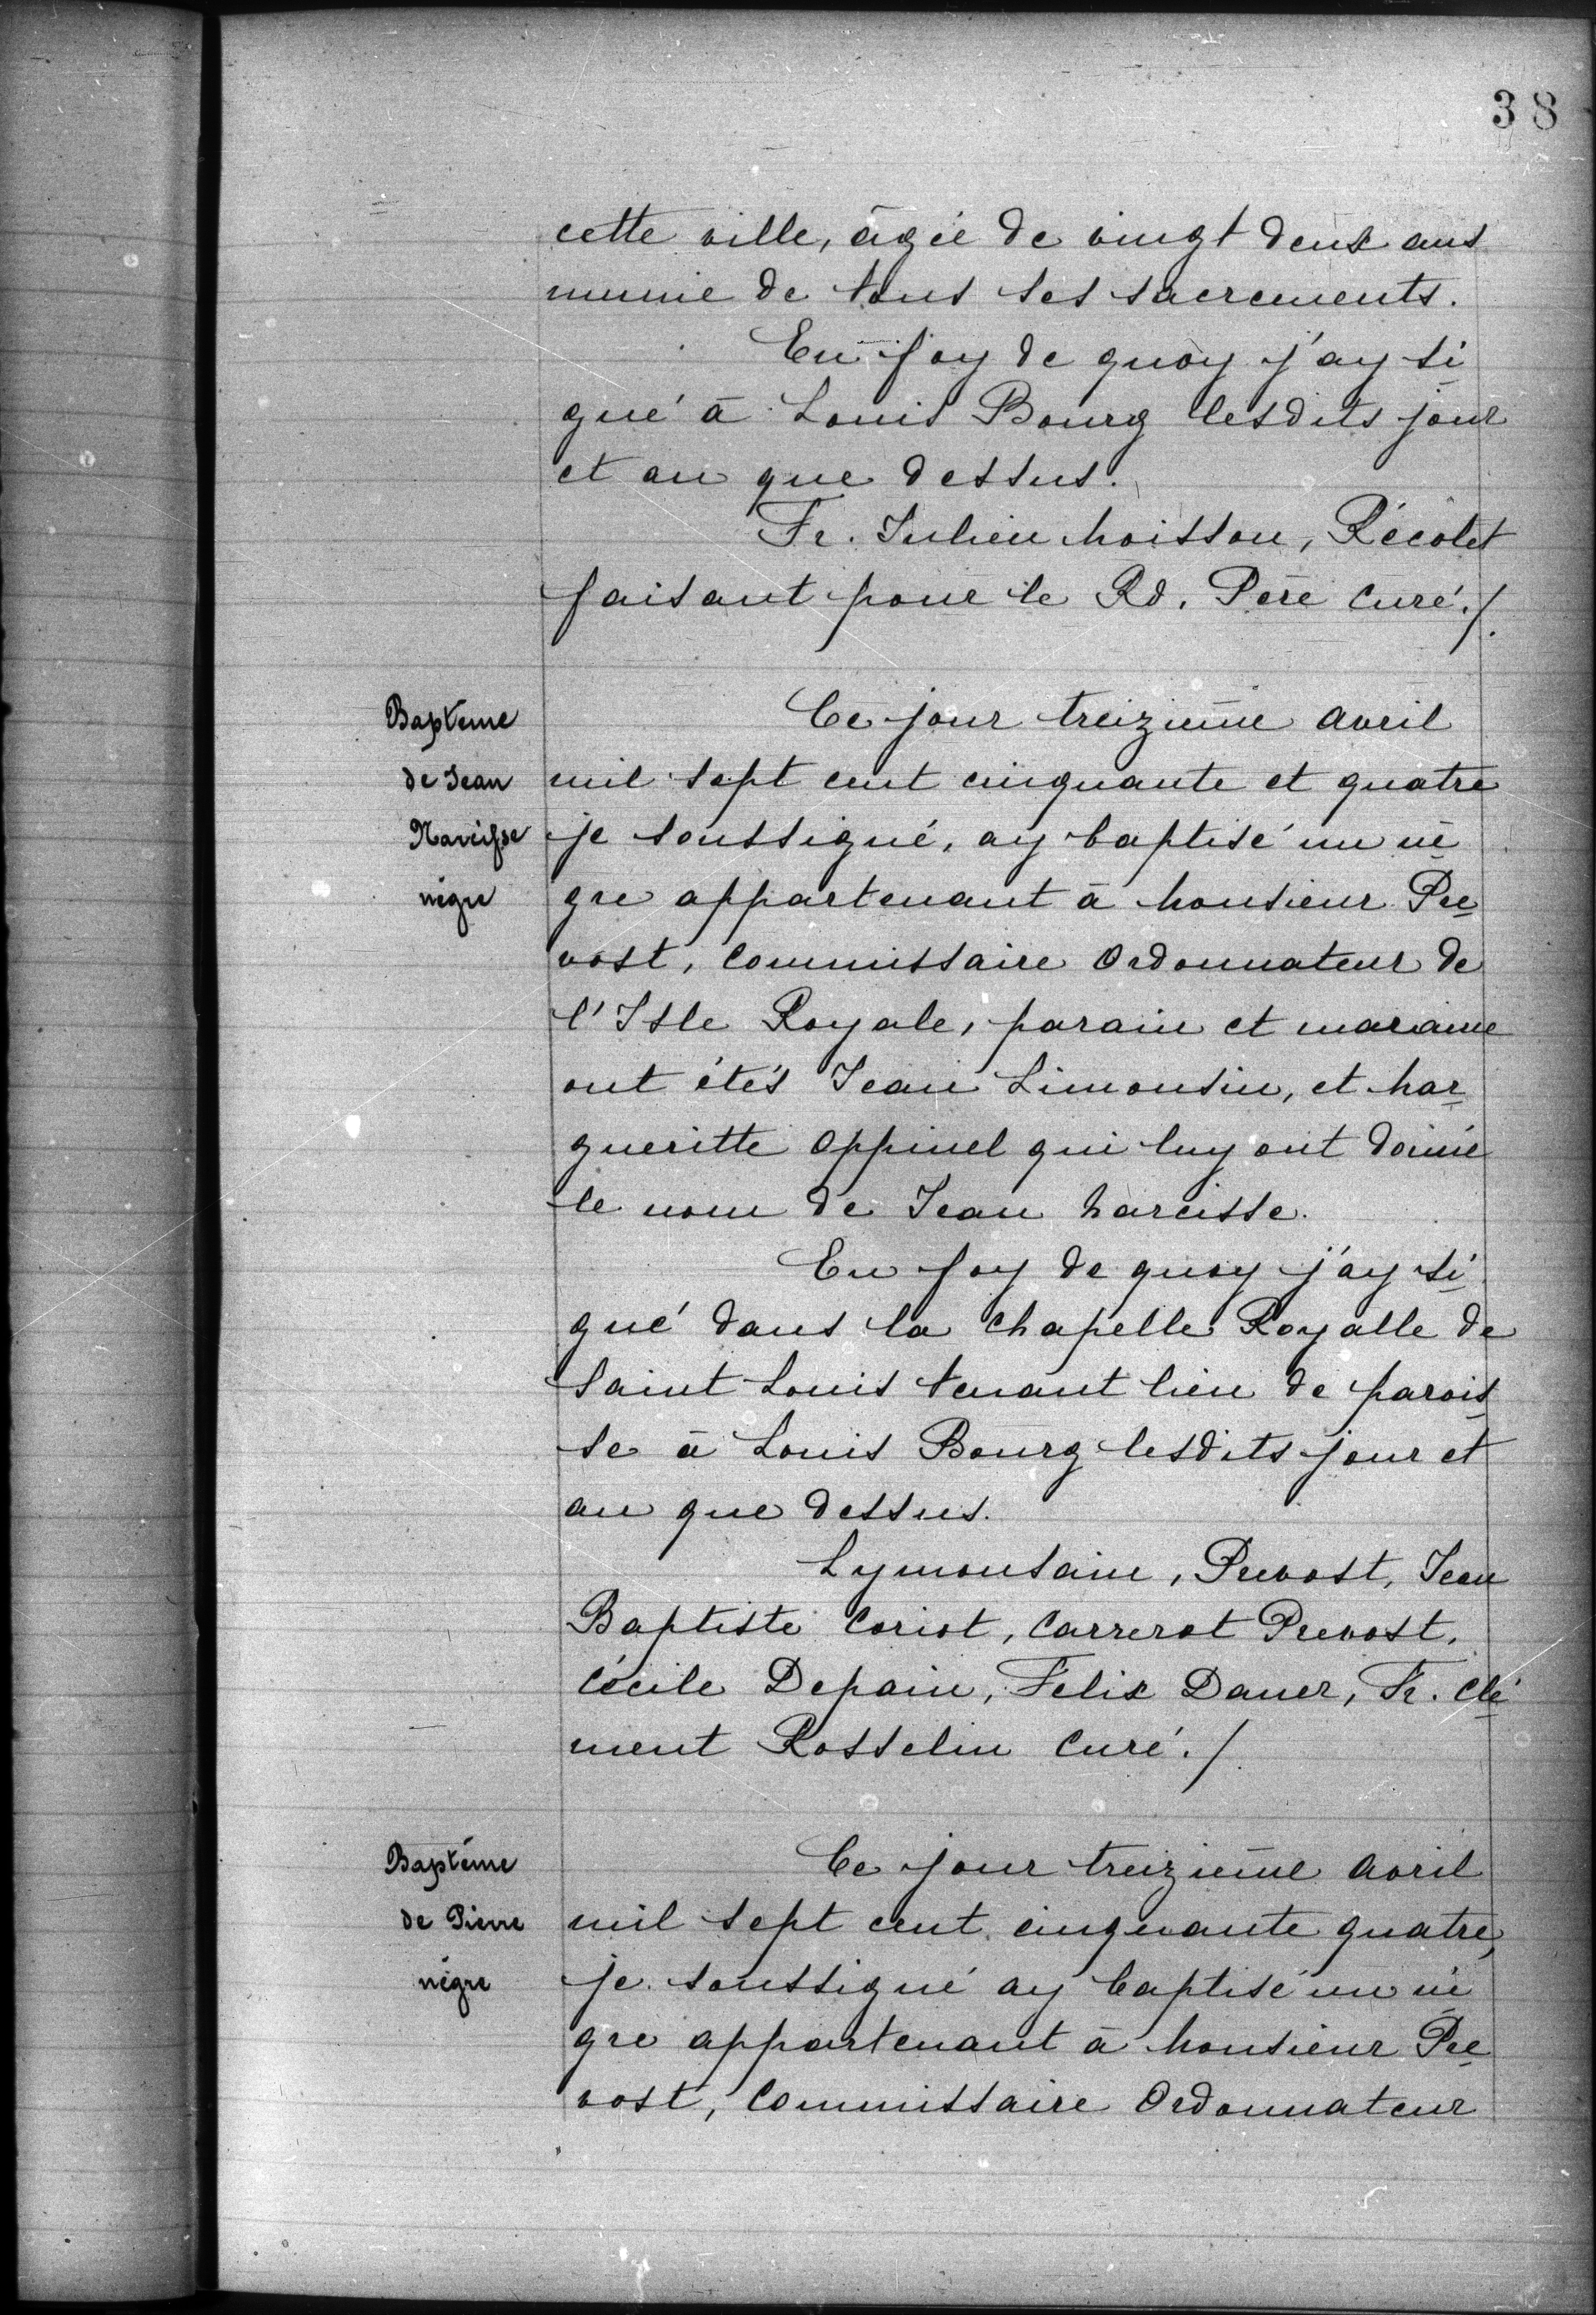 38
cette ville, âgée de vingt deux ans
munie de tous ses sacrements.
En foy de quoy j'ay si
gné à Louis Bourg lesdits jour
et an que dessus.
Fr. Julien Moisson, Récolet
faisant pour le Rd. Père Curé./.
Baptême
de Jean
Narcisse
nègre
Ce jour treizième avril
mil sept cent cinquante et quatre
je soussigné, ay baptisé un nè
gre appartenant à Monsieur Pre
vost, Commissaire Ordonnateur de
l'Isle Royale, parain et maraine
ont étés Jean Limousin, et Mar
gueritte Oppinel qui luy ont donné
le nom de Jean Narcisse.
En foy de quoy j'ay si
gné dans la Chapelle Royalle de
Saint Louis tenant lieu de parois
se à Louis Bourg lesdits jour et
an que dessus.
Lymousain, Prevost, Jean
Baptiste Coriot, Carrerot Prevost,
Cécile Depain, Felix Daner, Fr. Clé
ment Rosselin Curé./.
Baptême
de Pierre
nègre
Ce jour treizième avril
mil sept cent cinquante quatre,
je soussigné ay baptisé un nè
gre appartenant à Monsieur Pre
vost, Commissaire Ordonnateur